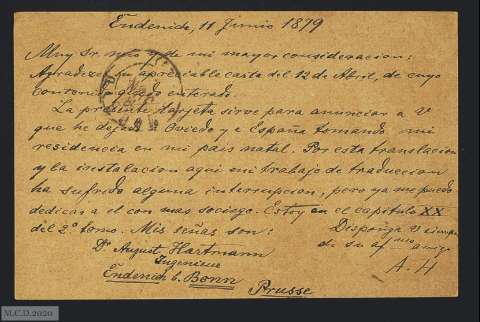 Endenich, 11 Junio 1879
Muy Sr. mio y de mi mayor consideracion:
Agradezco su apreciable carta del 12 de Abril, de cuyo
contenido quedo enterado.
La presente tarjeta sirve para anunciar a V
que he dejado a Oviedo y a España tomando mi
residencia en mi pais natal. Por esta translacion
y la instalacion aqui mi trabajo de traduccion
ha sufrido alguna interrupcion, pero ya me puedo
dedicar a el con mas sociego. Estoy en el capitulo XX
del 2º tomo. Mis señas son:
Dr. August Hartmann
Ingenieur
Endenich b. Bonn
Prusse
Disponga V siempre
de su af.mo amigo
A. H
M.C.D.2020